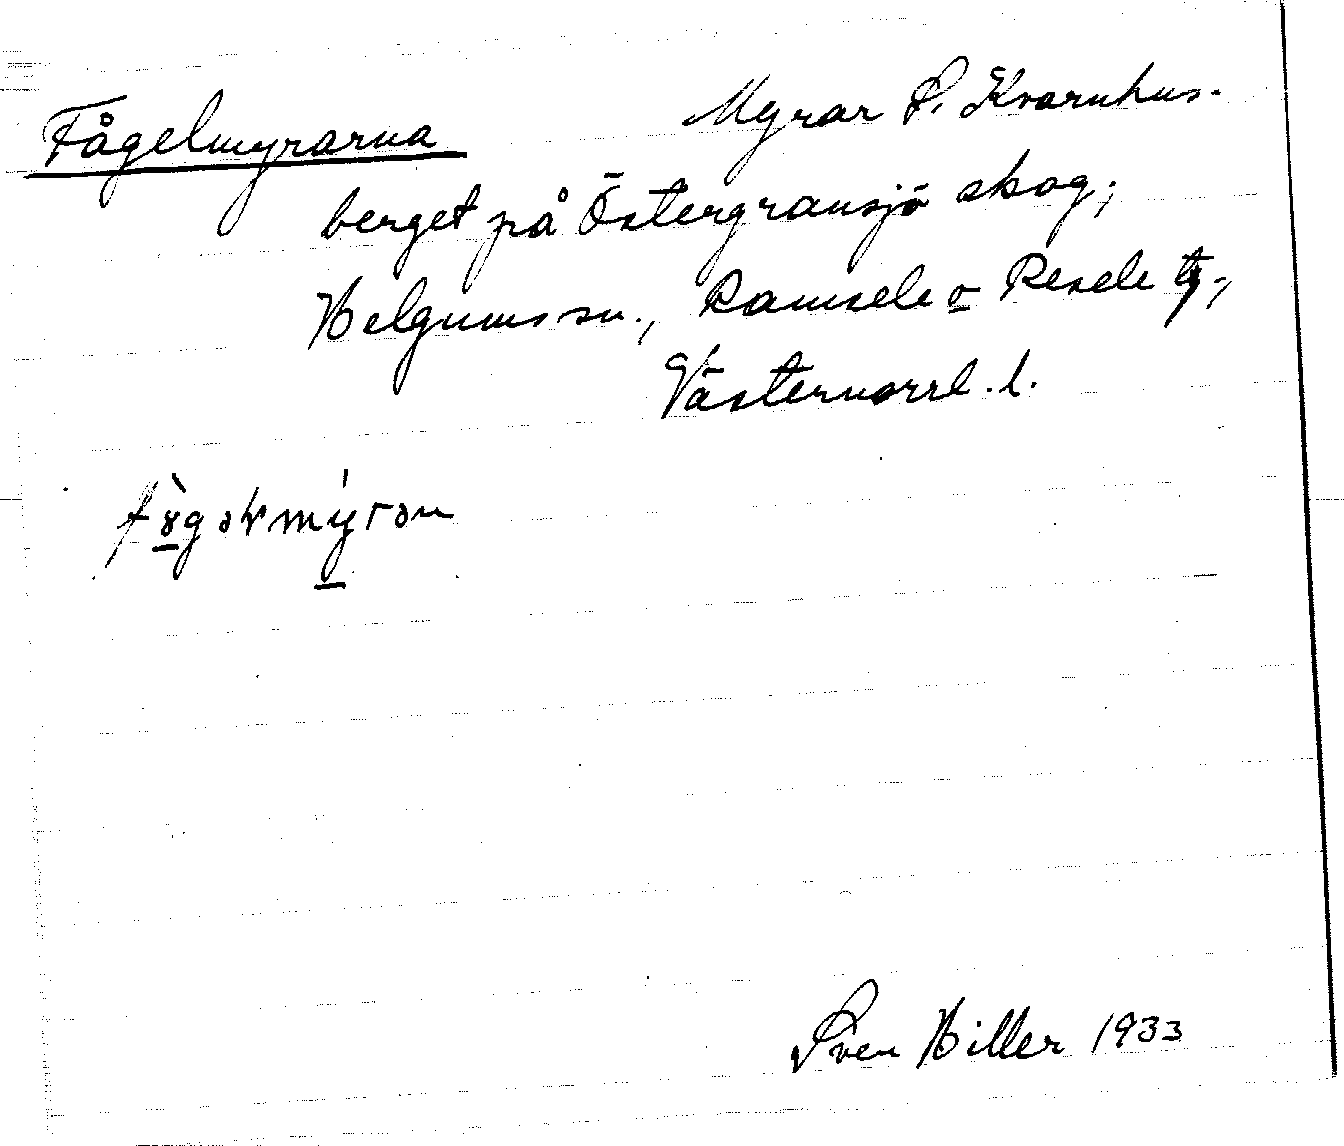 Fågelmyrarna Myrar S. Kvarnhus-
berget på Östergransjö skog;
Helgums sn., Ramsele o Resele tg,
Västernorrl. l.
Sven Hiller 1933